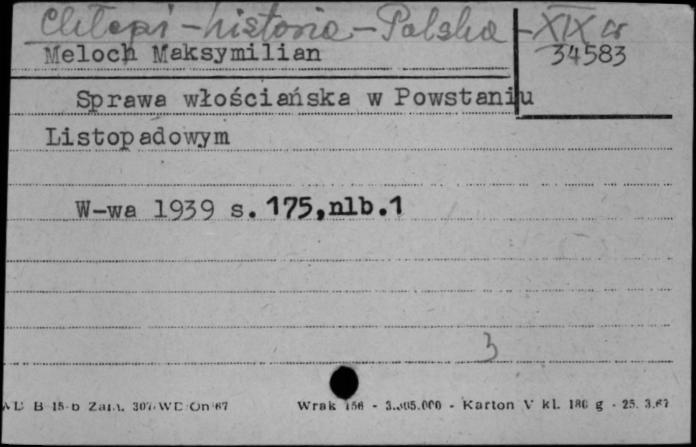 Chłopi - historia - Polska - XIX w
Meloch Maksymilian
34583
Sprawa włościańska w Powstaniu
Listopadowym
W-wa 1939 s. 175,nlb.1
3
B 15-b Zam. 307/WD/On/67 Wrak 156 - 3.505.000 - Karton V kl. 180 g - 25. 3.67